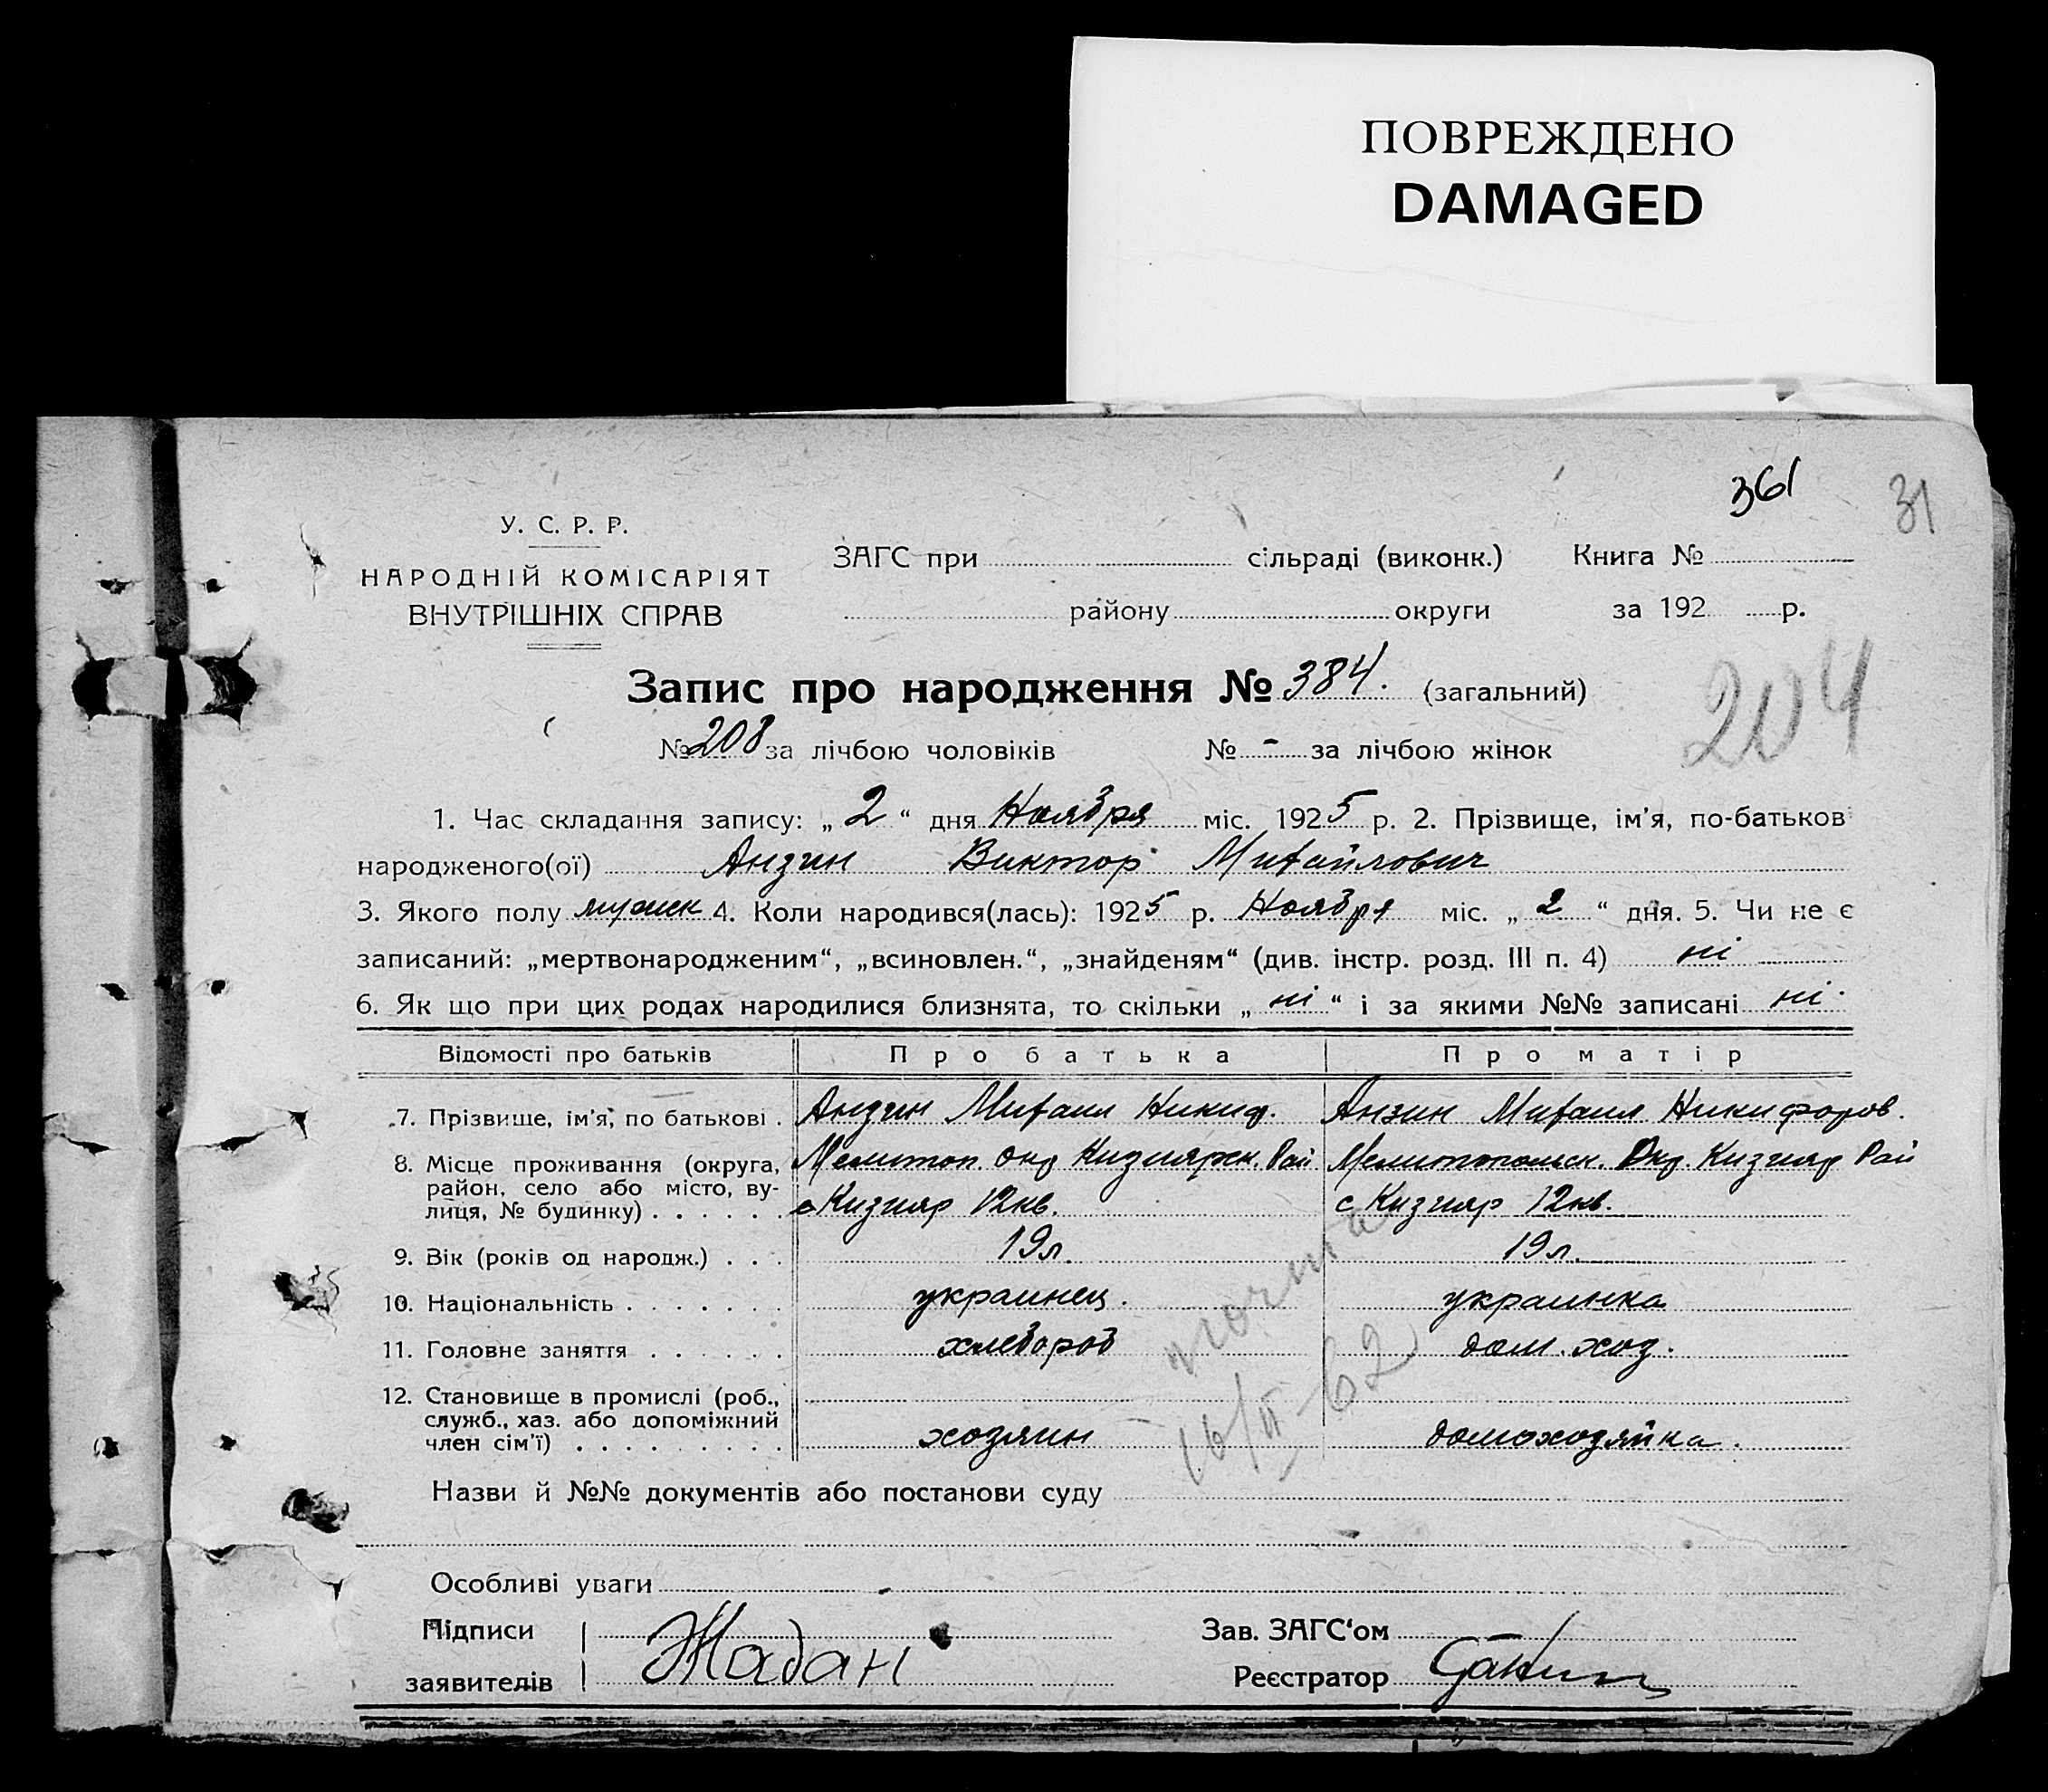 ПОВРЕЖДЕНО
DAMAGED
361
31
У. С. Р. Р.
НАРОДНІЙ КОМІСАРІЯТ
ВНУТРІШНІХ СПРАВ
ЗАГС при сільраді (виконк.) Книга №
району округи за 192 р.
Запис про народження № 384. (загальний)
204
№ 208 за лічбою чоловіків № - за лічбою жінок
1. Час складання запису: „ 2 “ дня Ноября міс. 1925 р. 2. Прізвище, ім'я, по-батьков
народженого(ої) Анзин Виктор Михайлович
3. Якого полу мужск 4. Коли народився(лась): 1925 р. Ноября міс. „ 2 “ дня. 5. Чи не є
записаний: „мертвонародженим“, „всиновлен.“, „знайденям“ (див. інстр. розд. III п. 4) ні
6. Як що при цих родах народилися близнята, то скільки „ ні “ і за якими №№ записані ні.
Відомості про батьків Про батька Про матір
7. Прізвище, ім'я, по батькові . Анзин Михаил Никиф. Анзин Михаил Никифоров.
8. Місце проживання (округа, Мелитоп Окр Кизиярск. Рай Мелитопольск. Окр. Кизияр Рай
район, село або місто, ву-
лиця, № будинку) . . . . . . с Кизияр 12кв. с Кизияр 12кв.
9. Вік (років од народж.) . . . 19л. 19л.
10. Національність . . . . . . . украинец. украинка
11. Головне заняття . . . . . . хлебороб дом. хоз.
12. Становище в промислі (роб.,
служб., хаз. або допоміжний
член сім'ї) . . . . . . . . . хозяин домохозяйка.
16/II-62
Назви й №№ документів або постанови суду
Особливі уваги -
Підписи Зав. ЗАГС'ом
заявителів Жадан Реєстратор